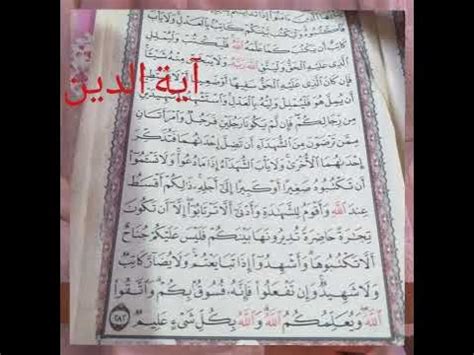 ءَامَنُوٓا۟ إِذَا تَدَايَنتُم
فَٱكْتُبُوهُ وَلْيَكْتُب بَّيْنَكُمْ كَاتِبٌۢ بِٱلْعَدْلِ وَلَا يَأْبَ
كَاتِبٌ أَن يَكْتُبَ كَمَا عَلَّمَهُ ٱللَّهُ فَلْيَكْتُبْ وَلْيُمْلِلِ
ٱلَّذِى عَلَيْهِ ٱلْحَقُّ وَلْيَتَّقِ ٱللَّهَ رَبَّهُۥ وَلَا يَبْخَسْ مِنْهُ شَيْـًٔا
آية الدين
فَإِن كَانَ ٱلَّذِى عَلَيْهِ ٱلْحَقُّ سَفِيهًا أَوْ ضَعِيفًا
أَن يُمِلَّ هُوَ فَلْيُمْلِلْ وَلِيُّهُۥ بِٱلْعَدْلِ وَٱسْتَشْهِدُوا۟ شَهِيدَيْنِ
مِن رِّجَالِكُمْ فَإِن لَّمْ يَكُونَا رَجُلَيْنِ فَرَجُلٌ وَٱمْرَأَتَانِ
مِمَّن تَرْضَوْنَ مِنَ ٱلشُّهَدَآءِ أَن تَضِلَّ إِحْدَىٰهُمَا فَتُذَكِّرَ
إِحْدَىٰهُمَا ٱلْأُخْرَىٰ وَلَا يَأْبَ ٱلشُّهَدَآءُ إِذَا مَا دُعُوا۟ وَلَا تَسْـَٔمُوٓا۟
أَن تَكْتُبُوهُ صَغِيرًا أَوْ كَبِيرًا إِلَىٰٓ أَجَلِهِۦ ذَٰلِكُمْ أَقْسَطُ
عِندَ ٱللَّهِ وَأَقْوَمُ لِلشَّهَٰدَةِ وَأَدْنَىٰٓ أَلَّا تَرْتَابُوٓا۟ إِلَّآ أَن تَكُونَ
تِجَٰرَةً حَاضِرَةً تُدِيرُونَهَا بَيْنَكُمْ فَلَيْسَ عَلَيْكُمْ جُنَاحٌ
أَلَّا تَكْتُبُوهَا وَأَشْهِدُوٓا۟ إِذَا تَبَايَعْتُمْ وَلَا يُضَآرَّ كَاتِبٌ
وَلَا شَهِيدٌ وَإِن تَفْعَلُوا۟ فَإِنَّهُۥ فُسُوقٌۢ بِكُمْ وَٱتَّقُوا۟
ٱللَّهَ وَيُعَلِّمُكُمُ ٱللَّهُ وَٱللَّهُ بِكُلِّ شَىْءٍ عَلِيمٌ ٢٨٢